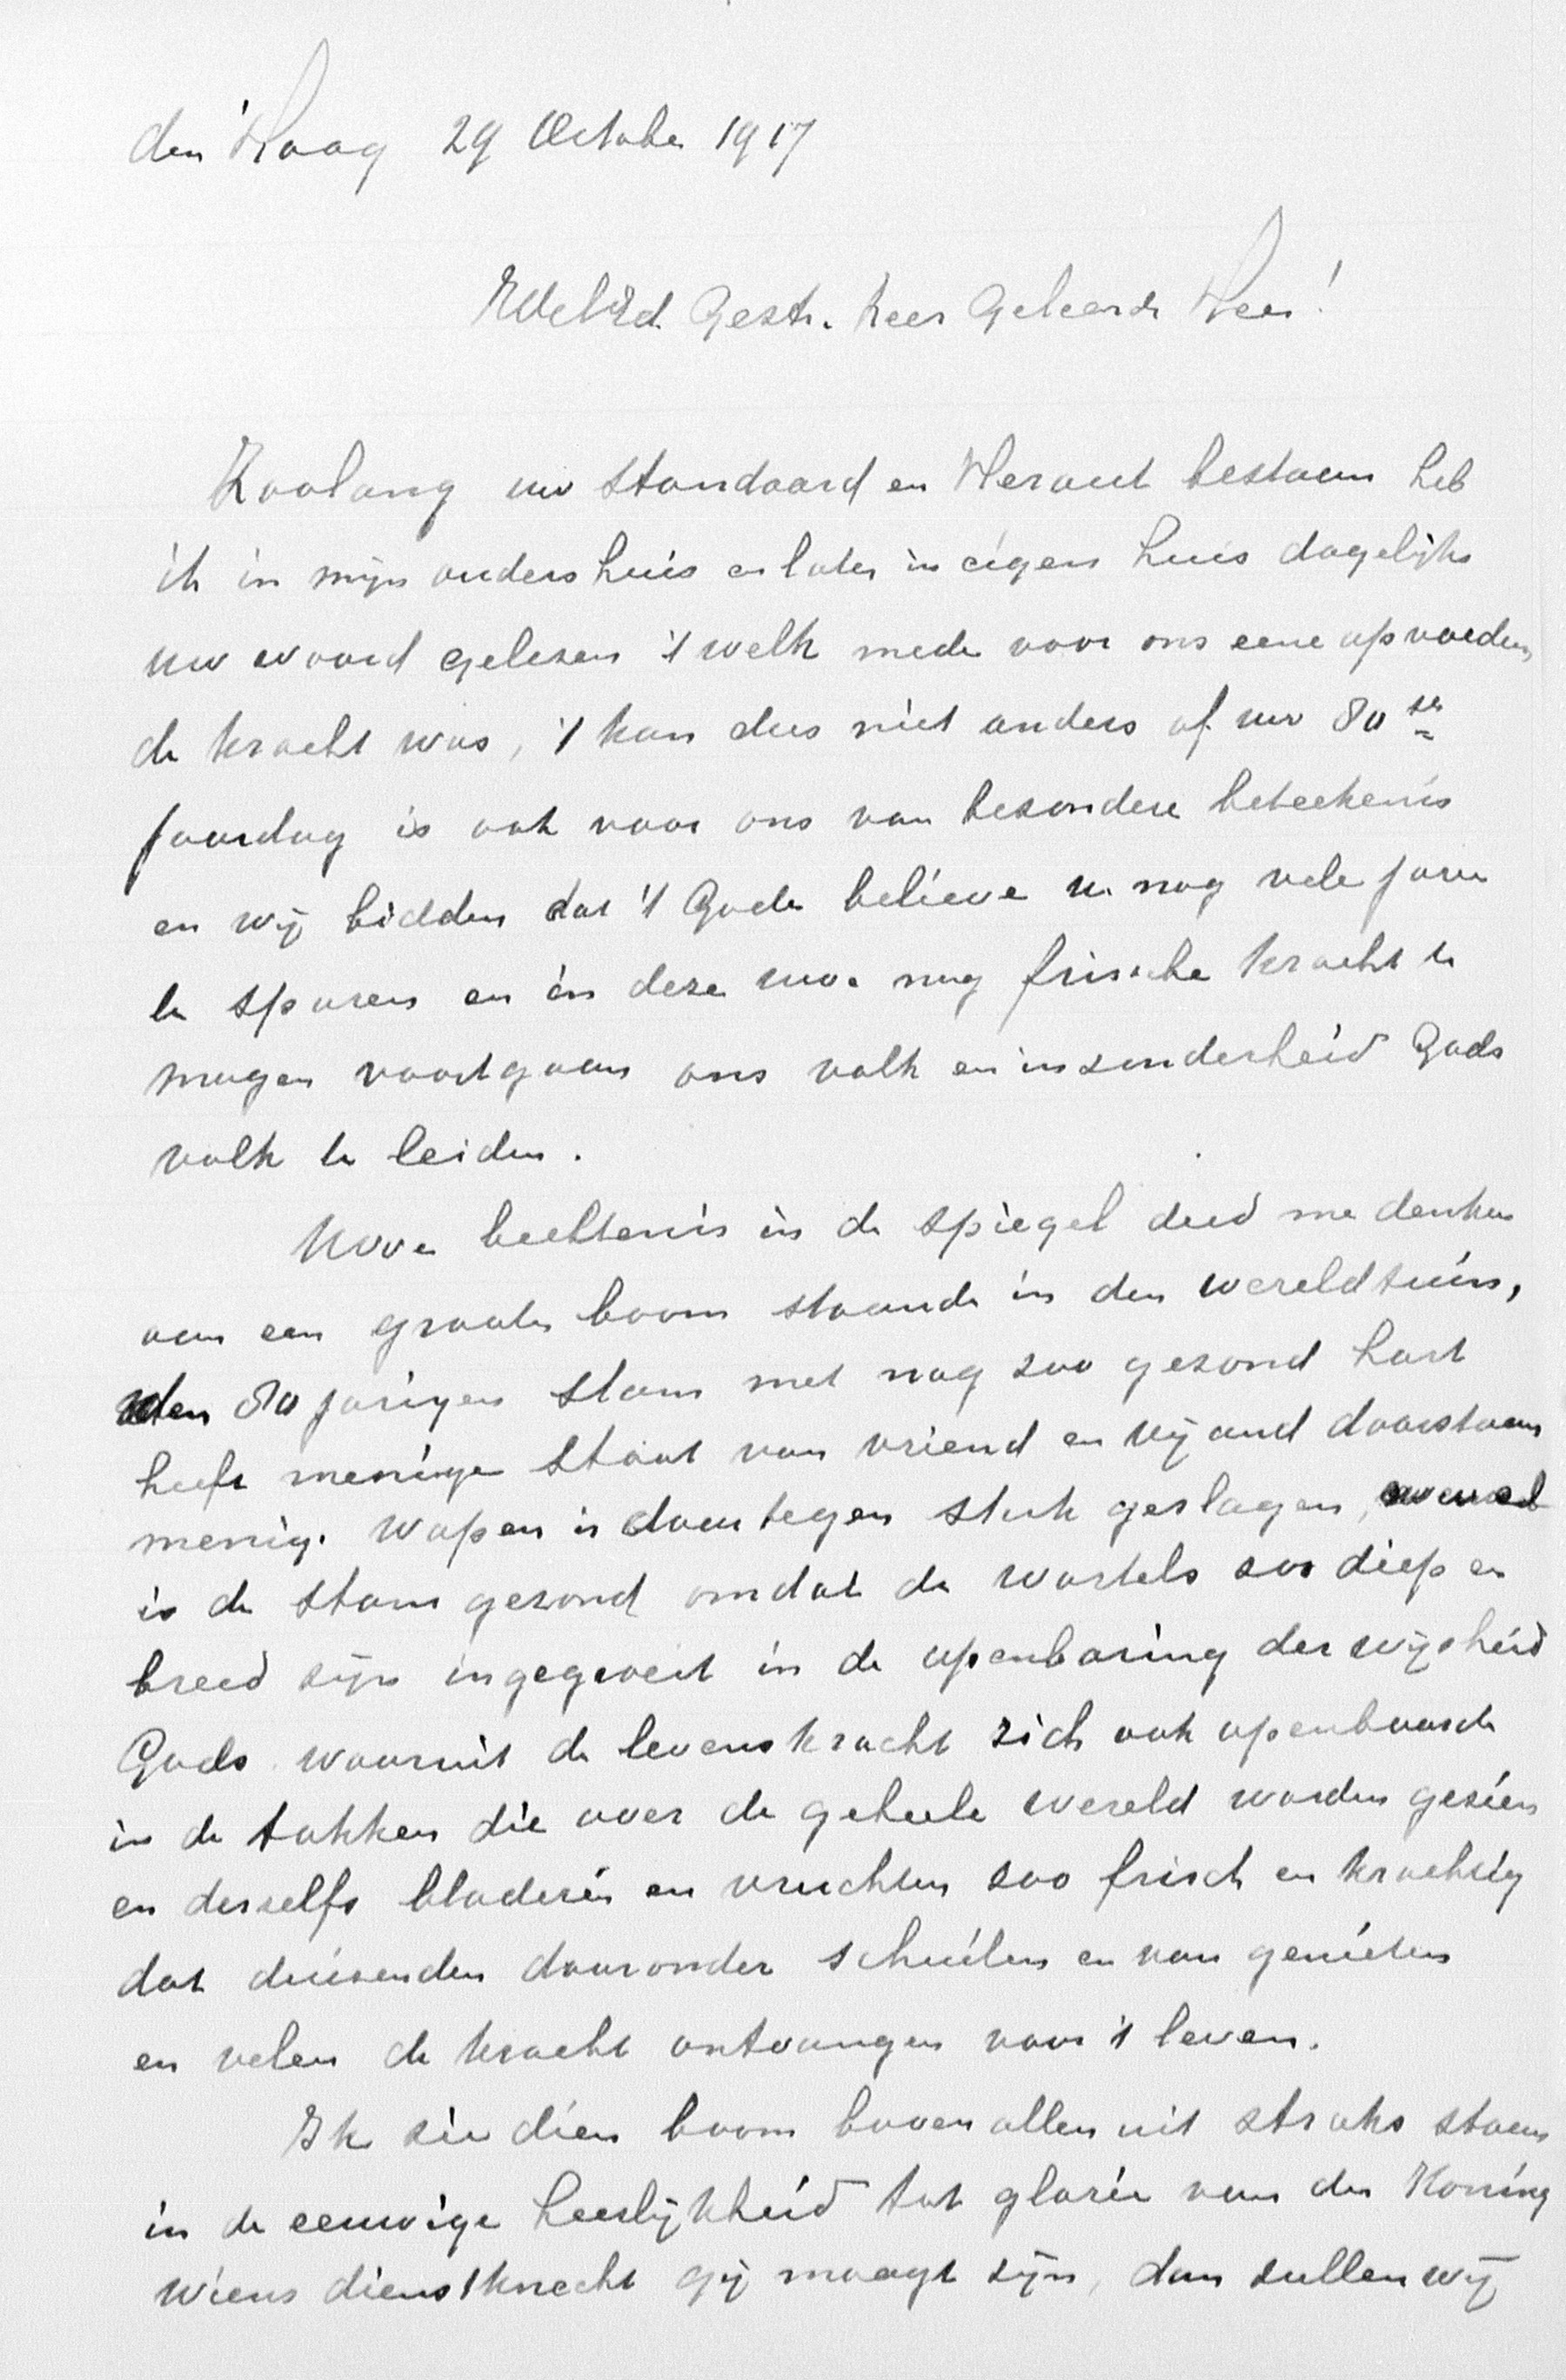 den Haag 29 October 1917
WelEd. Gestr. Zeer Geleerde Heer!
Zoolang uw Standaard en Heraut bestaan heb
ik in mijn ouders huis en later in eigen huis dagelijks
uw woord gelezen 't welk mede voor ons eene opvoeden
de kracht was, 't kan dus niet anders of uw 80ste
jaardag is ook voor ons van bezondere beteekenis
en wij bidden dat 't Gode believe u nog vele jaren
te sparen en in deze uwe nog frissche kracht te
mogen voortgaan ons volk en inzonderheid Gods
volk te leiden.
Uwe beeltenis in de spiegel deed me denken
aan een grooten boom staande in den wereldtuin,
den 80 jarigen stam met nog zoo gezond hart
heeft menige stoot van vriend en vijand doorstaan
menig wapen is daar tegen stuk geslagen,
is de stam gezond omdat de wortels zoo diep en
breed zijn ingegroeit in de openbaring der wijsheid
Gods waaruit de levenskracht zich ook openbaarde
in de takken die over de geheele wereld worden gezien
en derzelfs bladeren en vruchten zoo frisch en krachtig
dat duizenden daaronder schuilen en van genieten
en velen de kracht ontvangen voor 't leven.
Ik zie dien boom boven allen uit straks staan
in de eeuwige heerlijkheid tot glorie van den Koning
Wiens dienstknecht gij moogt zijn, dan zullen wij